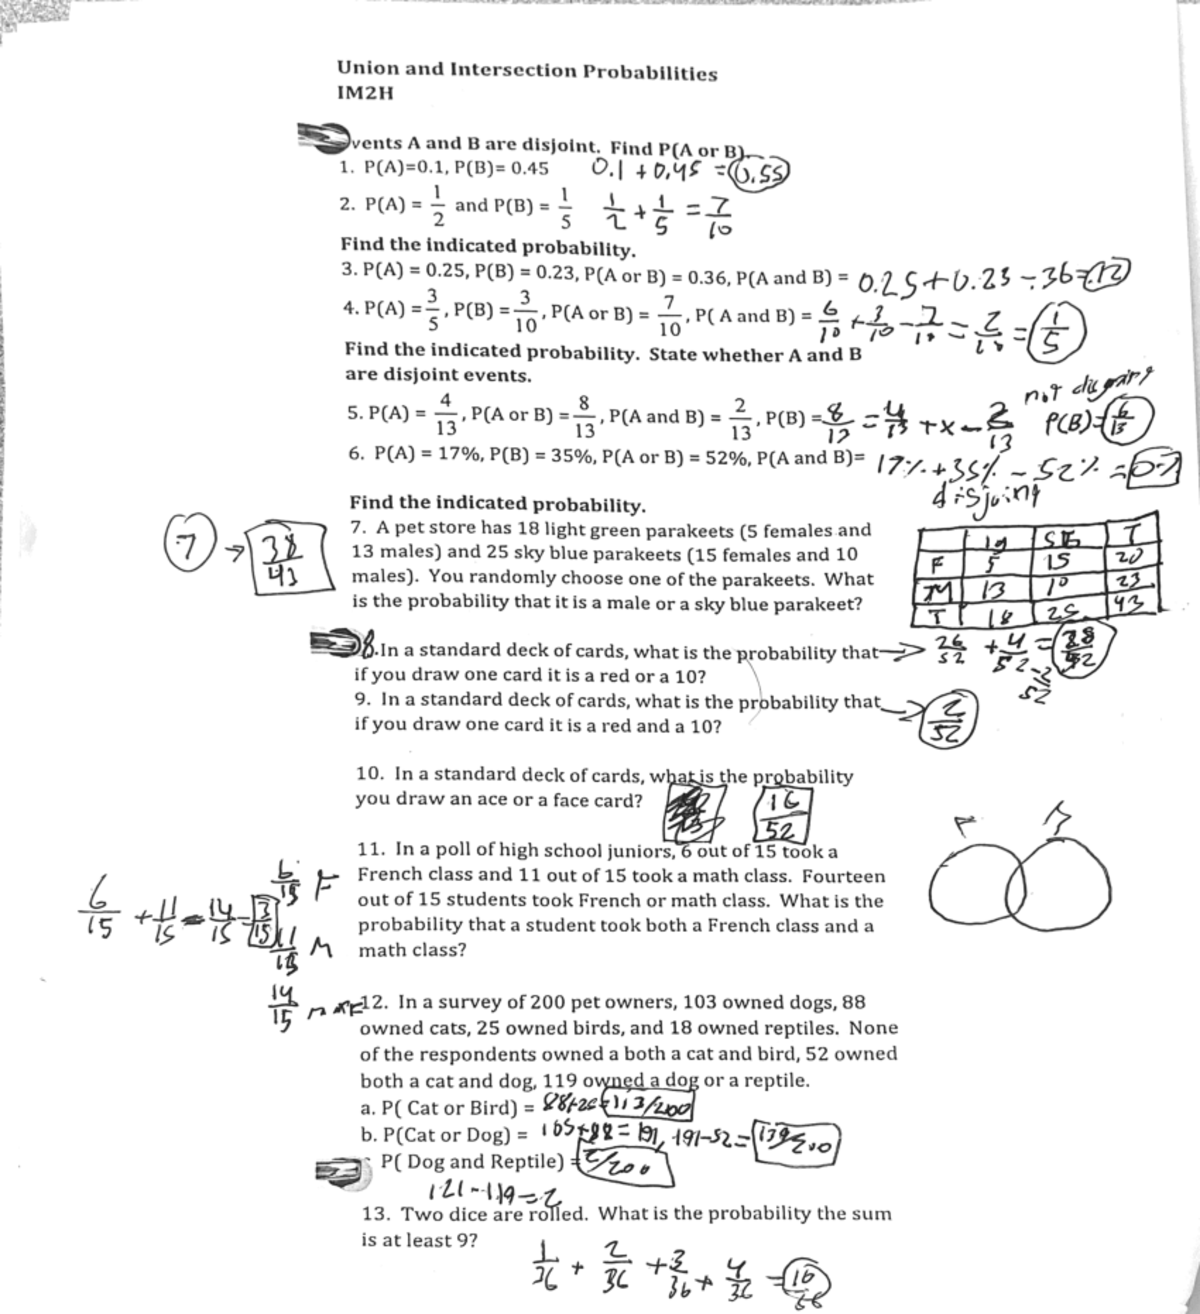 Union and Intersection Probabilities
IM2H
vents A and B are disjoint. Find P(A or B)
1. P(A)=0.1, P(B)= 0.45 0.1 + 0.45 = 0.55
2. P(A) = 1/2 and P(B) = 1/5 1/2 + 1/5 = 7/10
Find the indicated probability.
3. P(A) = 0.25, P(B) = 0.23, P(A or B) = 0.36, P(A and B) = 0.25+0.23-.36=.12
4. P(A) = 3/5, P(B) = 3/10, P(A or B) = 7/10, P( A and B) = 6/10 + 3/10 - 7/10 = 2/10 = 1/5
Find the indicated probability. State whether A and B
are disjoint events.
not
5. P(A) = 4/13, P(A or B) = 8/13, P(A and B) = 2/13, P(B) = 8/13 = 4/13 + x - 2/13 P(B)=6/13
6. P(A) = 17%, P(B) = 35%, P(A or B) = 52%, P(A and B)= 17%+35% - 52% =
disjoing
Find the indicated probability.
7. A pet store has 18 light green parakeets (5 females and
13 males) and 25 sky blue parakeets (15 females and 10
males). You randomly choose one of the parakeets. What
is the probability that it is a male or a sky blue parakeet?
7 → 38/43
lg T
F 5 15 20
M 13 10 23
T 18 25 43
8.In a standard deck of cards, what is the probability that → 26/52 + 4/52 - 2/52 =
if you draw one card it is a red or a 10?
9. In a standard deck of cards, what is the probability that → 2/52
if you draw one card it is a red and a 10?
10. In a standard deck of cards, what is the probability
you draw an ace or a face card? 16/52
11. In a poll of high school juniors, 6 out of 15 took a
French class and 11 out of 15 took a math class. Fourteen
out of 15 students took French or math class. What is the
probability that a student took both a French class and a
math class?
6/15 + 11/15 - 14/15 = 3/15
6/15 F
11/15 M
14/15
F
12. In a survey of 200 pet owners, 103 owned dogs, 88
owned cats, 25 owned birds, and 18 owned reptiles. None
of the respondents owned a both a cat and bird, 52 owned
both a cat and dog, 119 owned a dog or a reptile.
a. P( Cat or Bird) = 88+25=113/200
b. P(Cat or Dog) = 103+88= 191, 191-52= 139/200
P( Dog and Reptile) = 2/200
121-119=2
13. Two dice are rolled. What is the probability the sum
is at least 9?
1/36 + 2/36 + 3/36 + 4/36 = 10/36